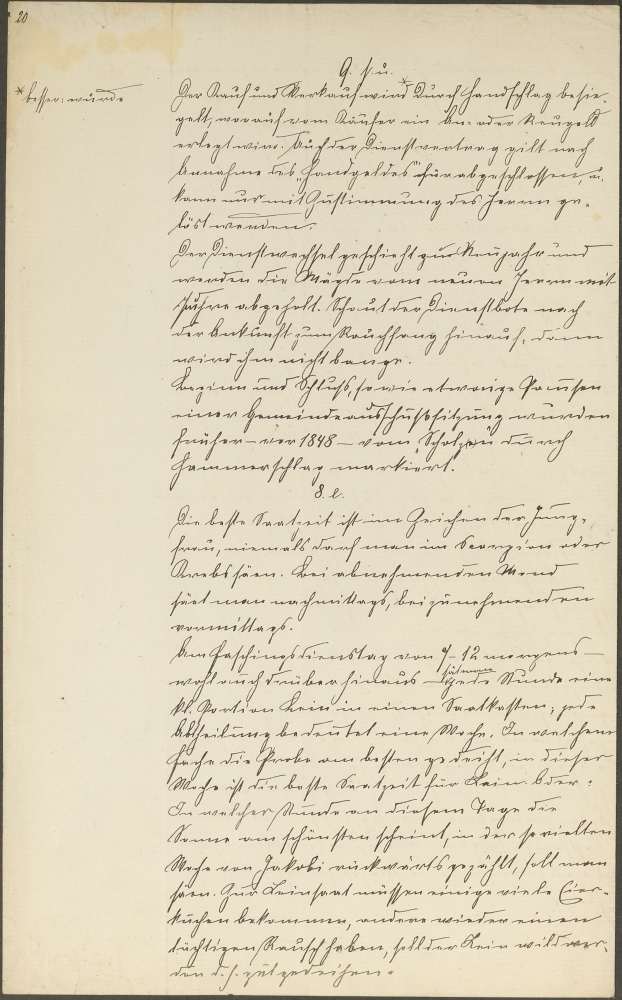 20
9. s. u.
* besser: wurde
Der Kauf und Verkauf wird * durch Handschlag besie-
gelt, worauf vom Käufer ein An- oder Reugeld
erlegt wird. Auch der Dienstvertrag gilt nach
Annahme des "Handgeldes" für abgeschlossen, u.
kann nur mit Zustimmung des Herrn ge-
löst werden.
Der Dienstwechsel geschieht zum Neujahr und
werden die Mägde vom neuen Herrn mit
Fuhre abgeholt. Schaut der Dienstbote nach
der Ankunft zum Rauchfang hinauf, dann
wird ihm nicht bange.
Beginn und Schluß, sowie etwaige Pausen
einer Gemeindeausschußsitzung wurden
früher – vor 1848 – vom "Scholzen" durch
Hammerschlag markiert.
8. l.
Die beste Saatzeit ist im Zeichen der Jung-
frau, niemals darf man im Scorpion oder
Krebs säen. Bei abnehmenden Mond
säet man nachmittags, bei zunehmenden
vormittags.
Am Faschingsdienstag von 9–12 morgens –
wohl auch drüber hinaus – säet man jede Stunde eine
kl. Portion Lein in einen Saatkasten; jede
Abtheilung bedeutet eine Woche. In welchem
Fache die Probe am besten gedeiht, in dieser
Woche ist die beste Saatzeit für Lein. Oder:
In welcher Stunde an diesem Tage die
Sonne am schönsten scheint, in der sovielten
Woche von Jakobi rückwärts gezählt, soll man
säen. Zur Leinsaat müssen einige viele Eier-
kuchen bekommen, andere wieder einen
tüchtigen Rausch haben, soll der Lein wild wer-
den d. h. gut gedeihen.